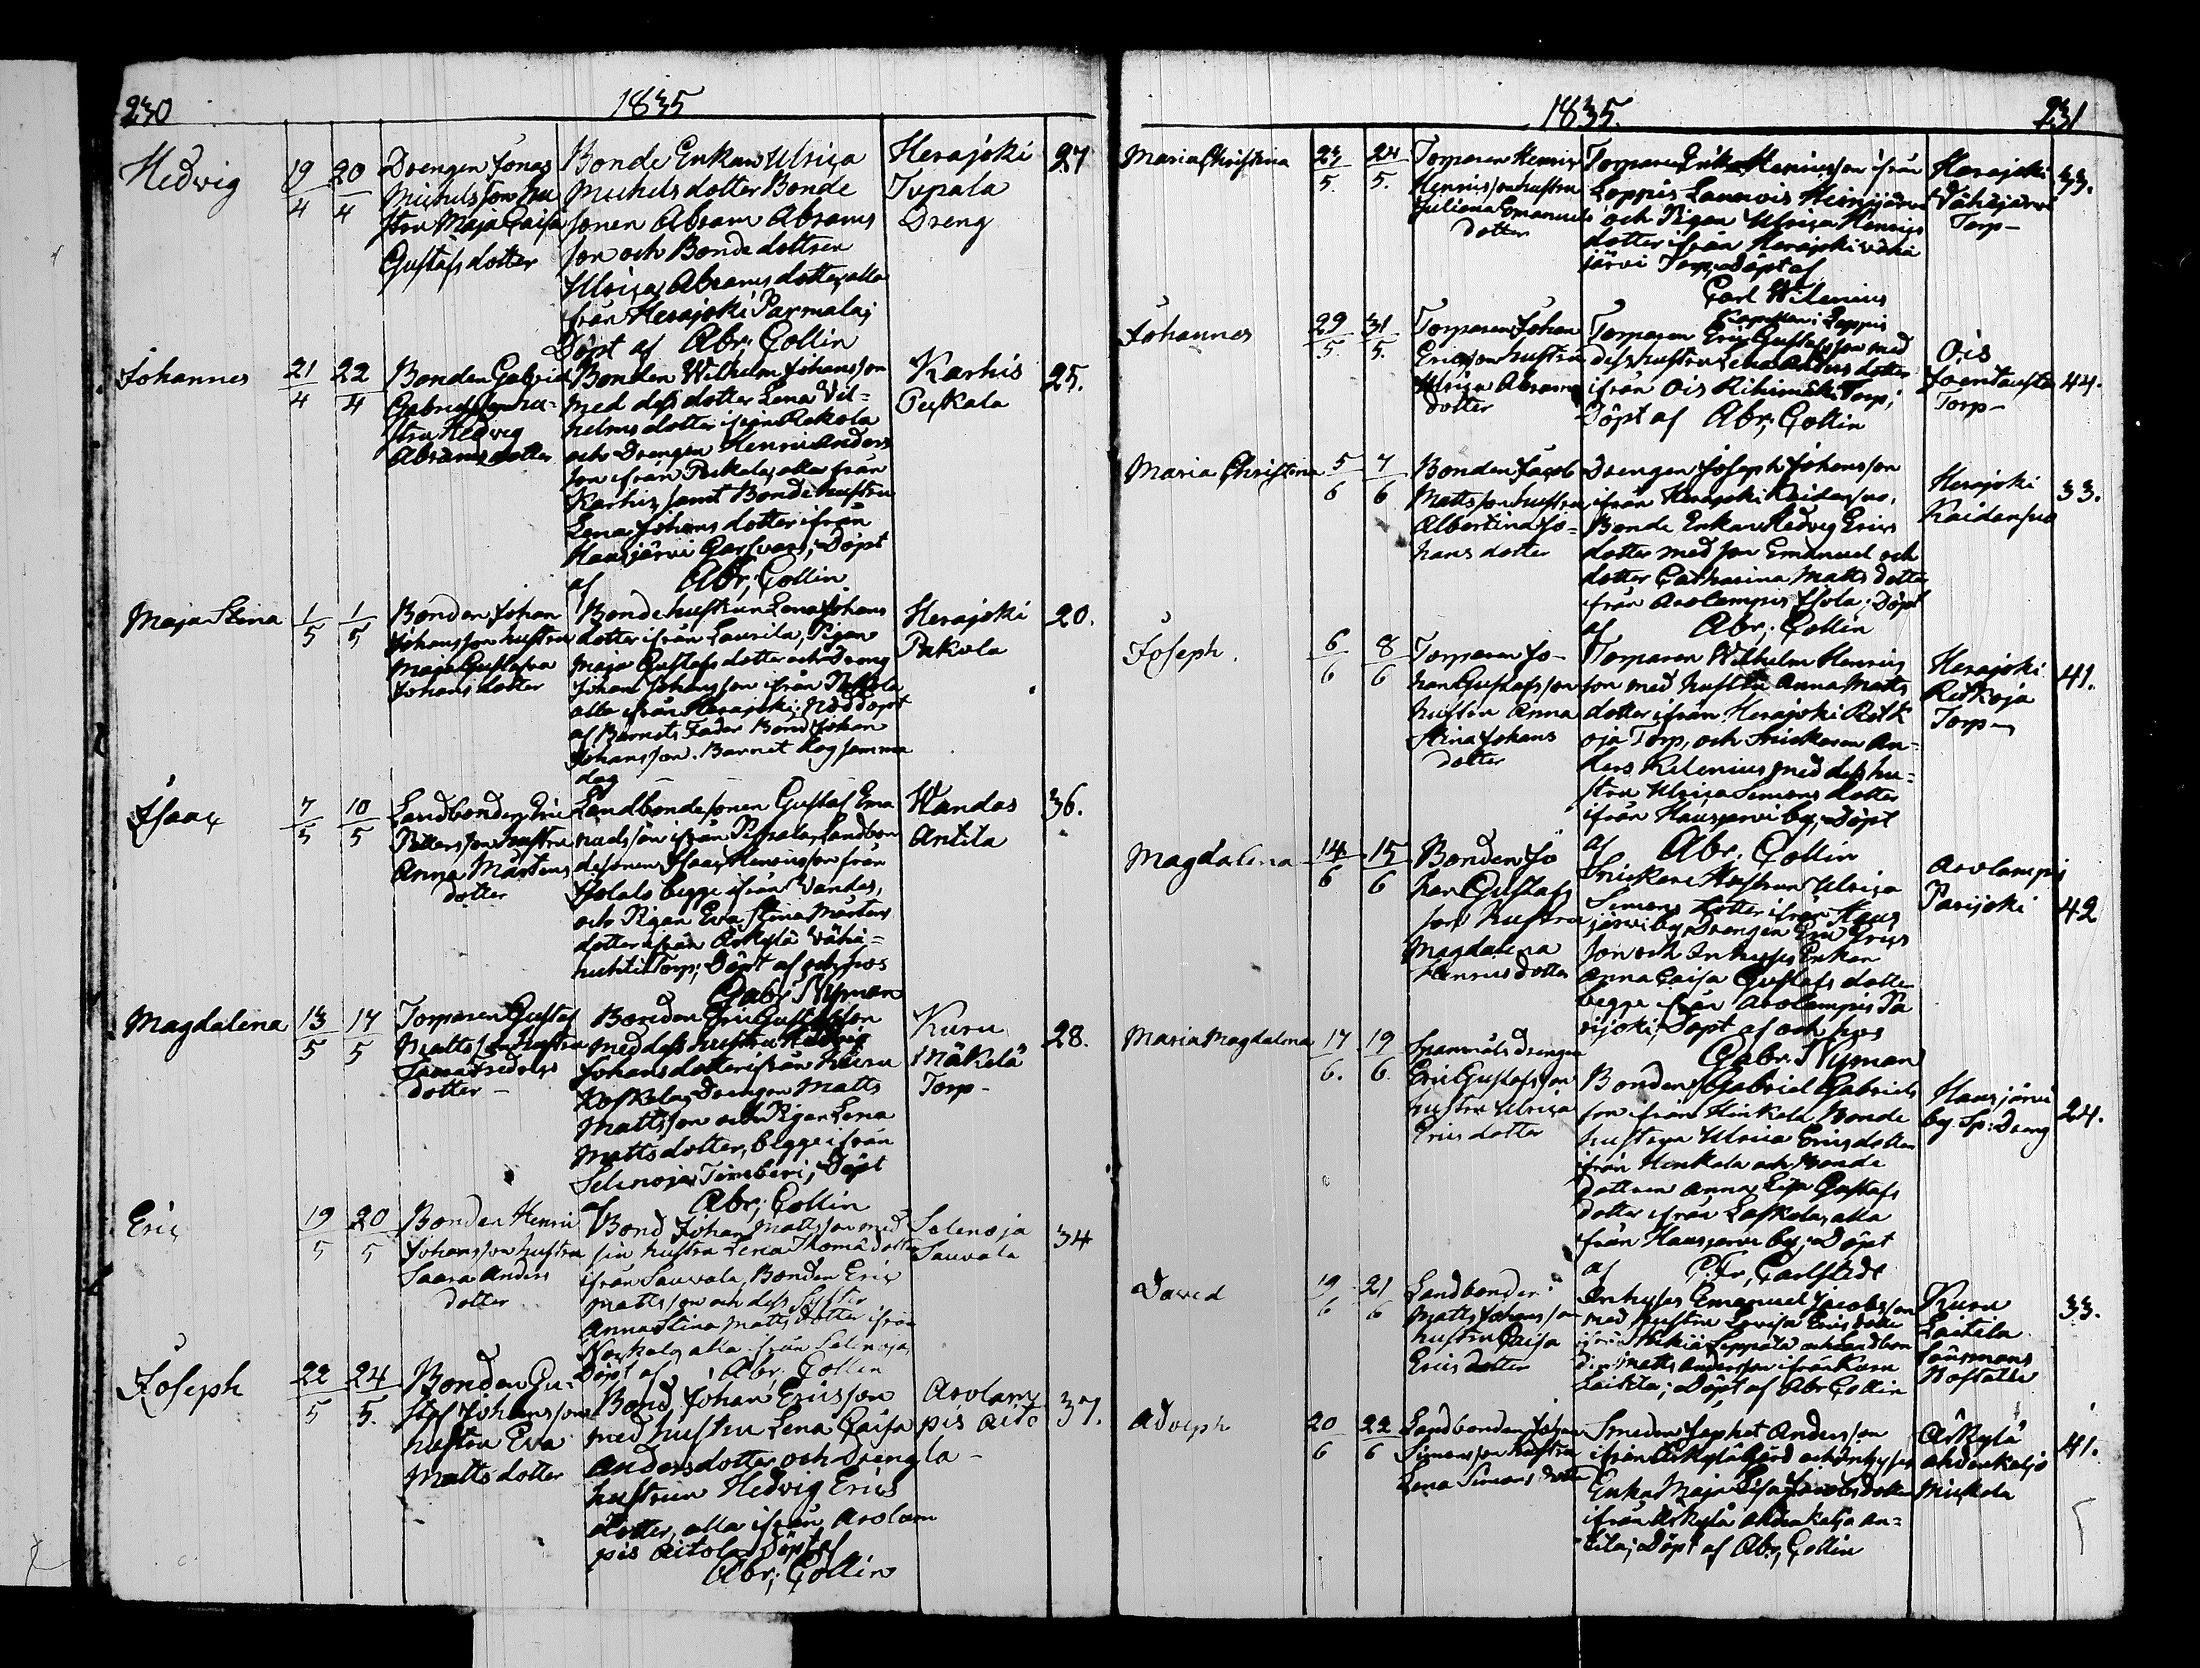 230
1835
Hedvig
19/4
20/4
Drengen Jonas
Michelsson hu
stru Maja Caisa
Gustafs dotter
Bonde Enkan Ulrica
Michels dotter Bonde
sonen Abram Abrams
son och Bonde dottren
Ulrica Abrams dotter, alla
från Herajoki Parmala;
Döpt af Abr; Collin
Herajoki
Dreng
27
Johannes
21/4
22/4
Bonden Gabriel
Gabriels son hu-
stru Hedvig
Abrams dotter
Bonden Wilhelm Johansson
med dess dotter Lena Vil-
helms dotter ifrån Rekola
och Drengen Henric Anders
son ifrån alla från
Karhis, samt Bonde hustru
Lena Johans dotter ifrån
Hausjärvi Döpt
af Abr; Collin
Karhis
25.
Maja Stina
1/5
1/5
Bonden Johan
Johansson hustru
Maja Gustafva
Johans dotter
Bonde hustrun Lena Johans
dotter ifrån Laurila, Pigan
Maja Gustafs dotter och Dreng
Johan Johansson ifrån
alla ifrån Herajoki; Nöddöpt
af Barnets Fader Bond Johan
Johansson. Barnet dog samma
dag
Herajoki
Pakola
20.
Isaac
7/5
10/5
Landbonden Eric
Pettersson hustru
Anna Mårtens
dotter
Landbondesonen Gustaf Ema
nuelsson ifrån Landbon
desonen Isaac Henricsson från
begge ifrån Vandas,
och Pigan Eva Stina Mårtens
dotter ifrån Äikylä Vähä-
huhti Torp; Döpt af och hos
Gabr. Nyman
Wandas
Antila
36.
Magdalena
13/5
17/5
Torparen Gustaf
Mattsson hustru
dotter
Bonden Eric Gustafsson
med dess hustru Hedvig
Johans dotter ifrån Kuru
Koskela, Drengen Matts
Mattsson och Pigan Lena
Matts dotter, begge ifrån
Selänoja Timberi; Döpt
af Abr; Collin
Kuru
Mäkelä
Torp-
28.
Eric
19/5
20/5
Bonden Henric
Johansson hustru
Saara Anders
dotter
Bond Johan Mattsson med
sin hustru Lena Thomædotter
ifrån Sauvala, Bonden Eric
Mattsson och dess Syster
Anna Stina Matts dotter ifrån
alla från Selenoja,
Döpt af Abr. Collin
Selenoja
Sauvala
34
Joseph
22/5
24/5.
Bonden Gu-
staf Johanssons
hustru Eva
Matts dotter
Bond Johan Ericsson
med hustru Lena Caisa
Anders dotter och Dreng
hustrun Hedvig Erics
dotter, alla ifrån Arolam
pis Aitola Döpt af
Abr; Collin
Arolam
pis Aito
la-
37.
1835.
231
Maria Christina
23/5.
24/5.
Torparen Henric
Henricsson hustru
Juliana Emanuels
dotter
Torparen Erik Henricsson ifrån
Loppis Launois Hirsijärvi
och Pigan Ulrica Henrics
dotter ifrån Herajoki Vähä
järvi Torp, Döpt af
Carl Wilenius
Capellan i Loppis
Herajoki
Vähäjärvi
Torp-
33.
Johannes
29/5.
31/5.
Torparen Johan
Ericsson hustru
Ulrica Abrams
dotter
Torparen Eric Gustafsson med
dess hustru Lena Anders dotter
ifrån Ois Rihimäki Torp;
Döpt af Abr; Collin
Ois
Joentausta
Torp-
44.
Maria Christina
5/6
7/6
Bonden Jacob
Mattsson hustru
Albertina Jo-
hans dotter
Drengen Joseph Johansson
ifrån Herajoki Kaidansuo,
Bonde Enkan Hedvig Erics
dotter med son Emanuel och
dotter Catharina Matts dotter
från Arolampis Isola; Döpt
af Abr; Collin
Herajoki
Kaidansuo
33.
Joseph.
6/6
8/6
Torparen Jo-
han Gustafsson
hustru Anna
Stina Johans
dotter
Torparen Wilhelm Henrics
son med hustru Anna Matts
dotter ifrån Herajoki Ritk
oja Torp, och Snickaren An-
ders Kilenius med dess hu-
stru Ulrica Simons dotter
ifrån Hausjärvi by; Döpt
af Abr; Collin
Herajoki
Ritkoja
Torp-
41.
Magdalena
14/6
15/6
Bonden Jo
han Gustafs
son hustru
Magdalena
Henrics dotter
Snickare Hustrun Ulrica
Simons dotter ifrån Haus
järvi by, Drengen Eric Erics
son och Inhyses Enkan
Anna Caisa Gustafs dotter
begge ifrån Arolampis Pa
rijoki; Döpt af och hos
Gabr. Nyman
Arolampis
Parijoki
42
Maria Magdalena
17/6.
19/6
Spanmåls drengen
Eric Gustafsson
hustru Ulrica
Erics dotter
Bonden Gabriel Gabriels
son ifrån Hinkala, Bonde
hustrun Ulrica Erics dotter
ifrån Hinkala och Bonde
dottren Anna Lisa Gustafs
dotter ifrån Laskola, alla
från Hausjärvi by; Döpt
af C. Fr; Carlstedt
Hausjärvi
by Sp: Dreng
24.
David
19/6
21/6
Landbonden
Matts Johansson
hustru Caisa
Erics dotter
Inhyses Emanuel Jacobsson
med hustru Lovisa Erics dotter
ifrån Leppälä och Landbon
den Matts Andersson ifrån Kuru
Laitila; Döpt af Abr Collin
Kuru
Laitila
Länsmans
Boställe
33.
Adolph
20/6
22/6
Landbonden Johan
Simonsson hustru
Lena Simons dotter
Smeden Japhet Andersson
ifrån Äikylä Gård och Inhyses
Enka Maja Lisa Jacobsdotter
ifrån Äikylä Ahdenkalja An-
tila; Döpt af Abr; Collin
Äikylä
Ahdenkaljo
Mickola
41.